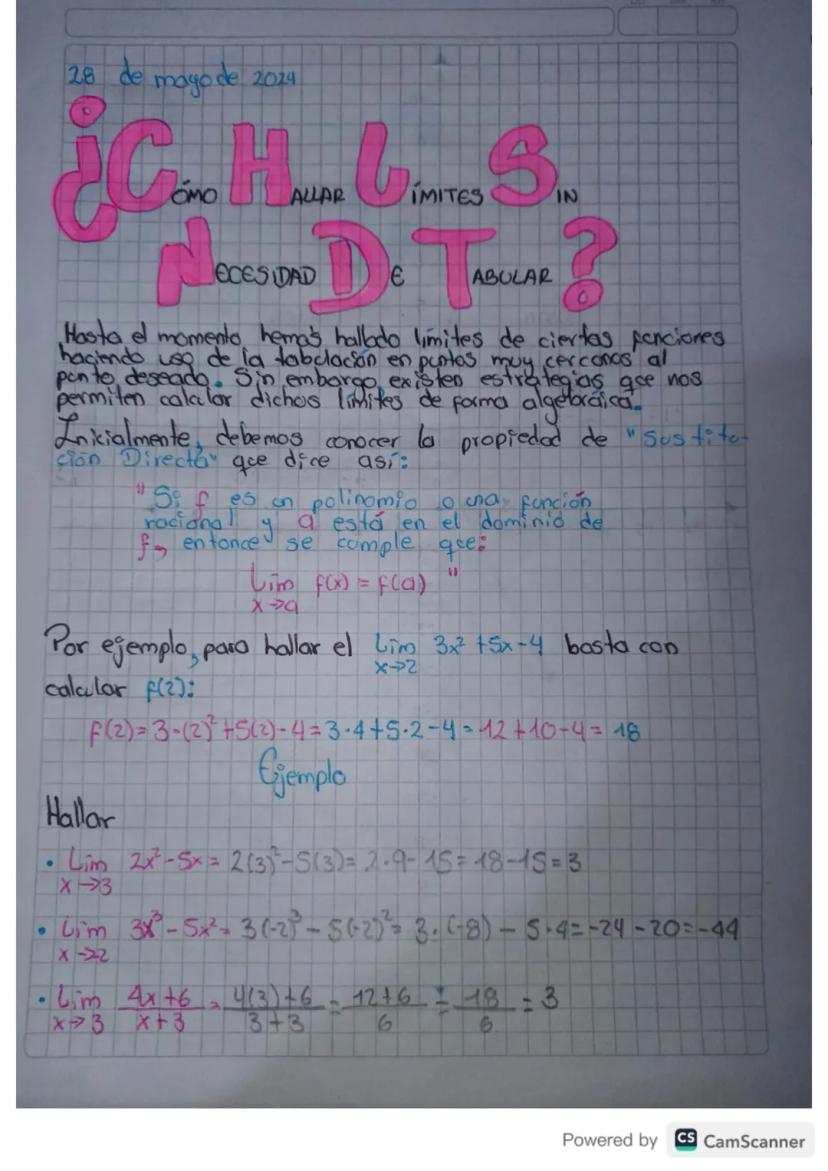 28 de mayo de 2024
¿CÓMO HALLAR LÍMITES SIN
NECESIDAD DE TABULAR?
Hasta el momento, hemos hallado límites de ciertas funciones
haciendo uso de la tabulación en puntos muy cercanos al
punto deseado. Sin embargo, existen estrategias que nos
permiten calcular dichos límites de forma algebráica.
Inicialmente, debemos conocer la propiedad de "Sustitu-
ción Directa" que dice así:
"Si f es un polinomio o una función
racional y a está en el dominio de
f, entonces se cumple que:
Lim f(x) = f(a) "
x→a
Por ejemplo, para hallar el Lim 3x² +5x-4 basta con
x→2
calcular f(2):
f(2)= 3·(2)² +5(2)-4=3·4+5·2-4=12+10-4= 18
Ejemplo
Hallar
• Lim 2x²-5x= 2(3)²-5(3)= 2·9-15=18-15=3
x→3
• Lim 3x³-5x²= 3(-2)³-5(-2)²= 3·(-8)-5·4=-24-20=-44
x→-2
• Lim 4x+6/x+3 = 4(3)+6/3+3 = 12+6/6 = 18/6 = 3
x→3
Powered by CS CamScanner